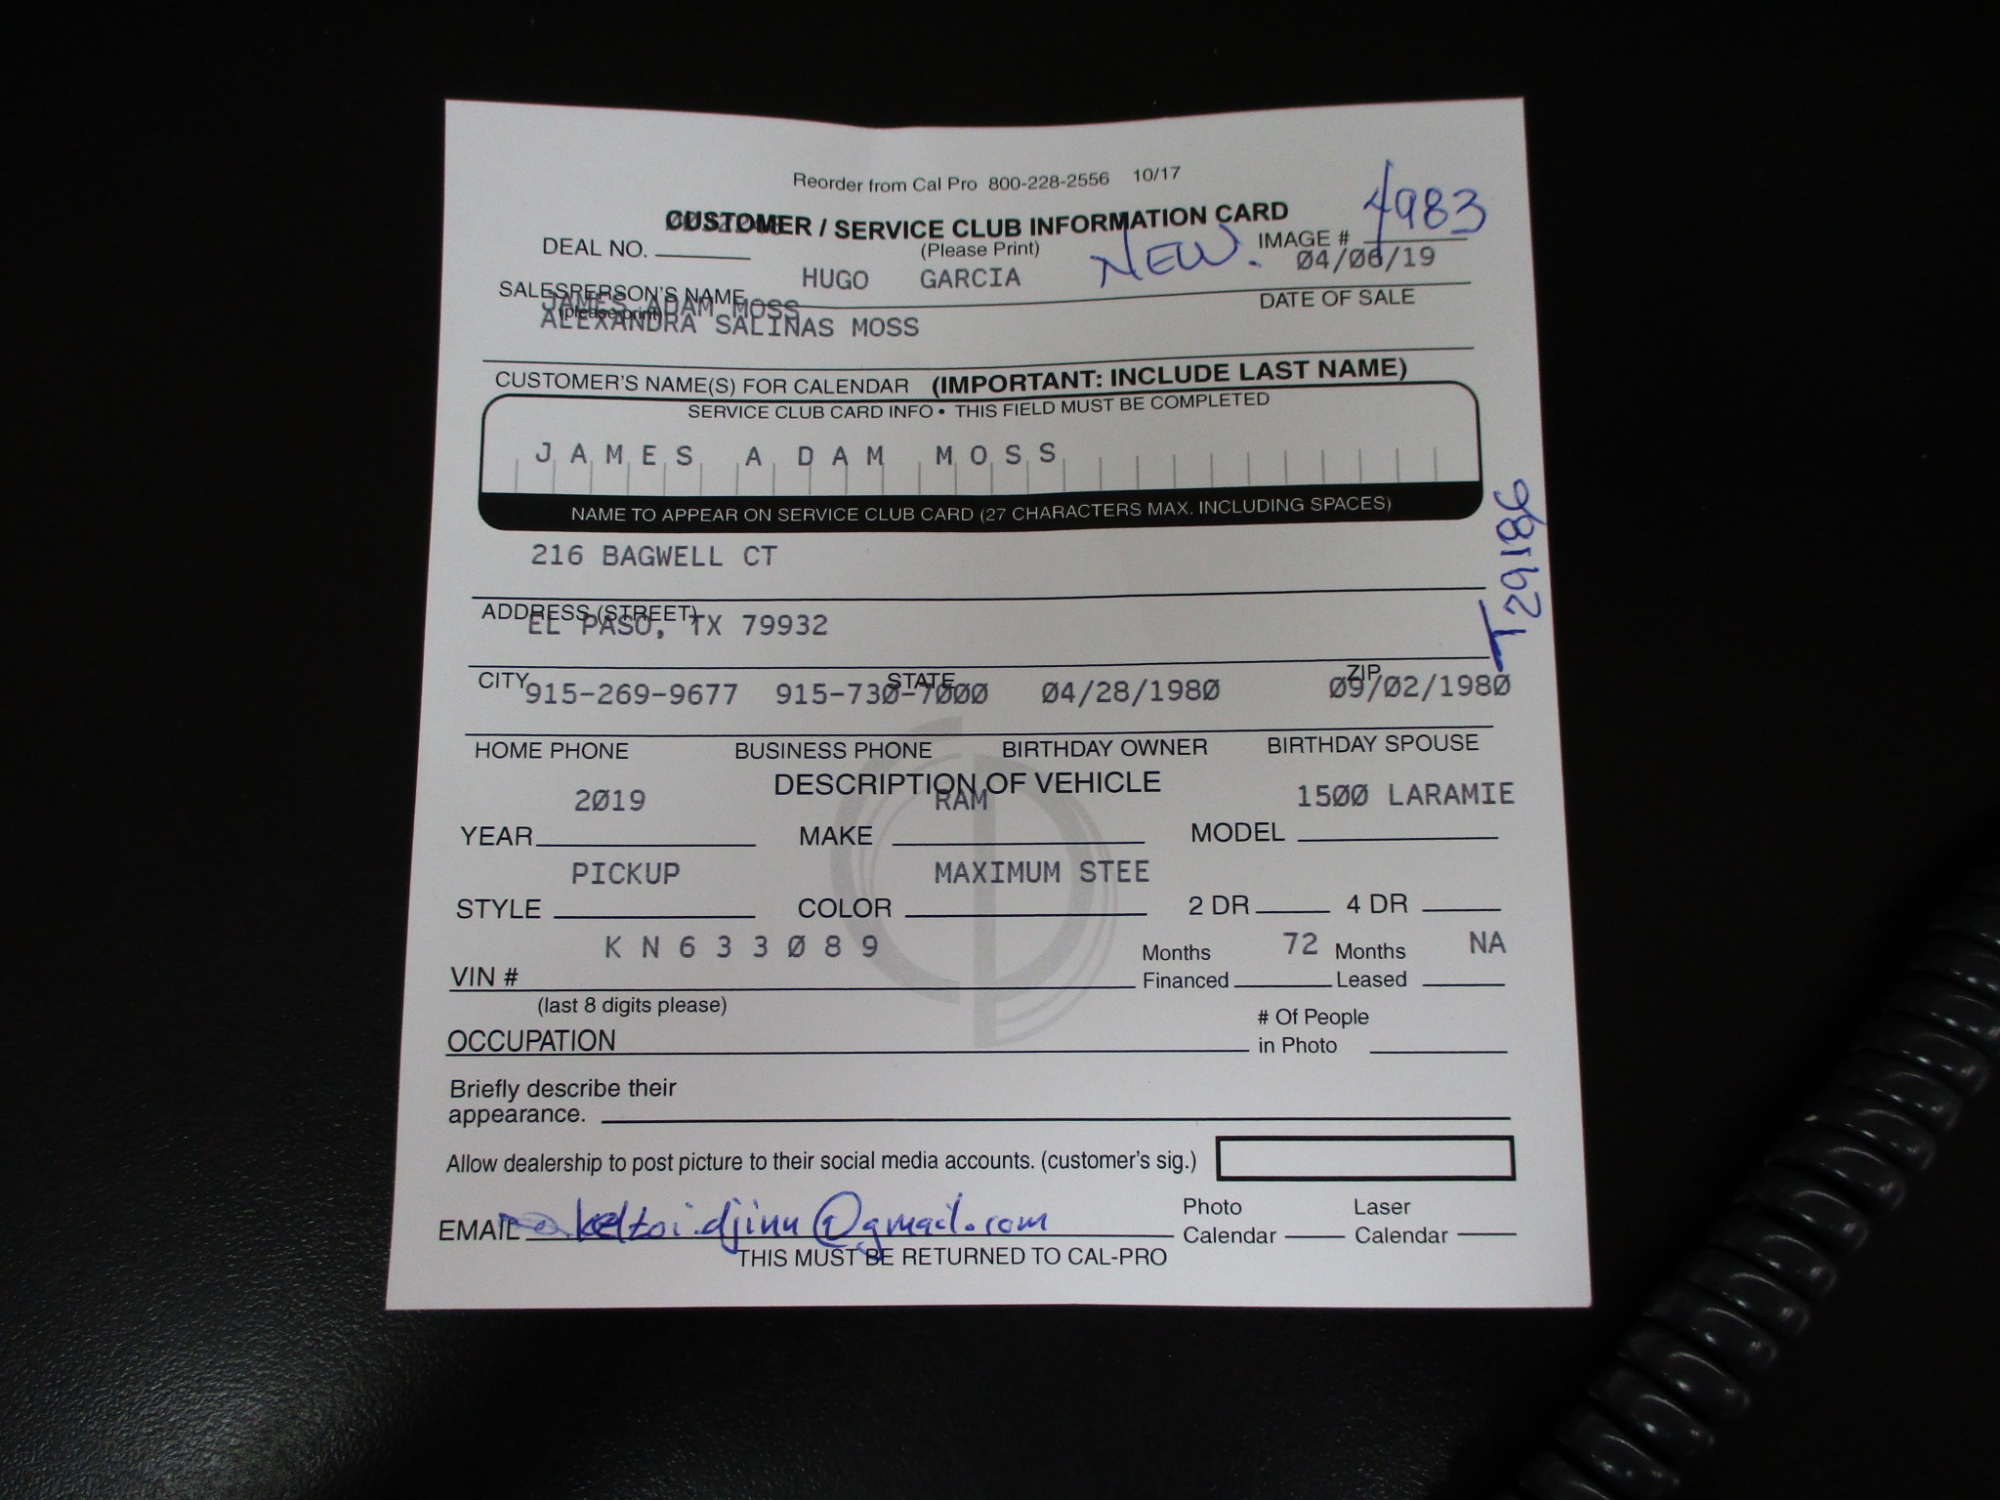 Reorder from Cal Pro 800-228-2556 10/17
CUSTOMER / SERVICE CLUB INFORMATION CARD
4983
DEAL NO. (Please Print) NEW. IMAGE #
HUGO GARCIA 04/06/19
SALESPERSON'S NAME DATE OF SALE
(please print)
JAMES ADAM MOSS
ALEXANDRA SALINAS MOSS
CUSTOMER'S NAME(S) FOR CALENDAR (IMPORTANT: INCLUDE LAST NAME)
SERVICE CLUB CARD INFO • THIS FIELD MUST BE COMPLETED
JAMES ADAM MOSS
NAME TO APPEAR ON SERVICE CLUB CARD (27 CHARACTERS MAX. INCLUDING SPACES)
T29186
216 BAGWELL CT
ADDRESS (STREET)
EL PASO, TX 79932
CITY STATE ZIP
915-269-9677 915-730-7000 04/28/1980 09/02/1980
HOME PHONE BUSINESS PHONE BIRTHDAY OWNER BIRTHDAY SPOUSE
DESCRIPTION OF VEHICLE
2019 RAM 1500 LARAMIE
YEAR MAKE MODEL
PICKUP MAXIMUM STEE
STYLE COLOR 2 DR 4 DR
KN633089 Months 72 Months NA
VIN # Financed Leased
(last 8 digits please)
# Of People
OCCUPATION in Photo
Briefly describe their
appearance.
Allow dealership to post picture to their social media accounts. (customer's sig.)
Photo Laser
EMAIL keltoi.djinn@gmail.com Calendar Calendar
THIS MUST BE RETURNED TO CAL-PRO